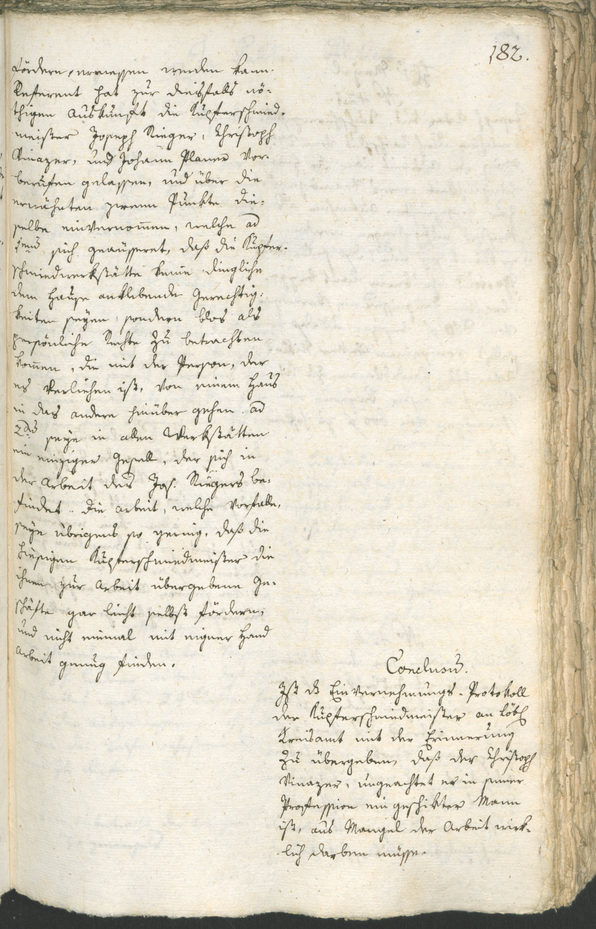 182.
fördern, erwiesen werden kann.
Referent hat zur diesfalls nö-
thigen Auskunft die Kupferschmied-
meister Joseph Rieger, Christoph
Vinazer, und Johann Planer vor-
berufen gelassen, und über die
ernähnten zween Punkte die-
selbe einvernommen, welche ad
1mum sich geäusseret, daß die Kupfer-
schmiedwerkstätte keine dingliche
dem Hause anklebende Gerechtig-
keiten seyen, sondern blos als
persönliche Rechte zu betrachten
kommen, die mit der Person, der
es verliehen ist, von einem Haus
in das andere hinüber gehen. ad
2dum seye in allen Werkstätten
ein einziger Gesell, der sich in
der Arbeit des Jos. Riegers be-
findet. Die Arbeit, welche vorfalle,
seye übrigens so gering, daß die
hiesigen Kupferschmiedmeister die
ihnen zur Arbeit übergebene Ge-
schäfte gar leicht selbst fördern,
und nicht einmal mit eigner Hand
Arbeit genug finden.
Conclusum.
Ist das Einvernehmungs-Protokoll
der Kupferschmiedmeister an Löbl.
Kreisamt mit der Erinnerung
zu übergeben, daß der Christoph
Vinazer, ungeachtet er in seiner
Profession ein geschikter Mann
ist, aus Mangel der Arbeit wirk-
lich darben müsse.